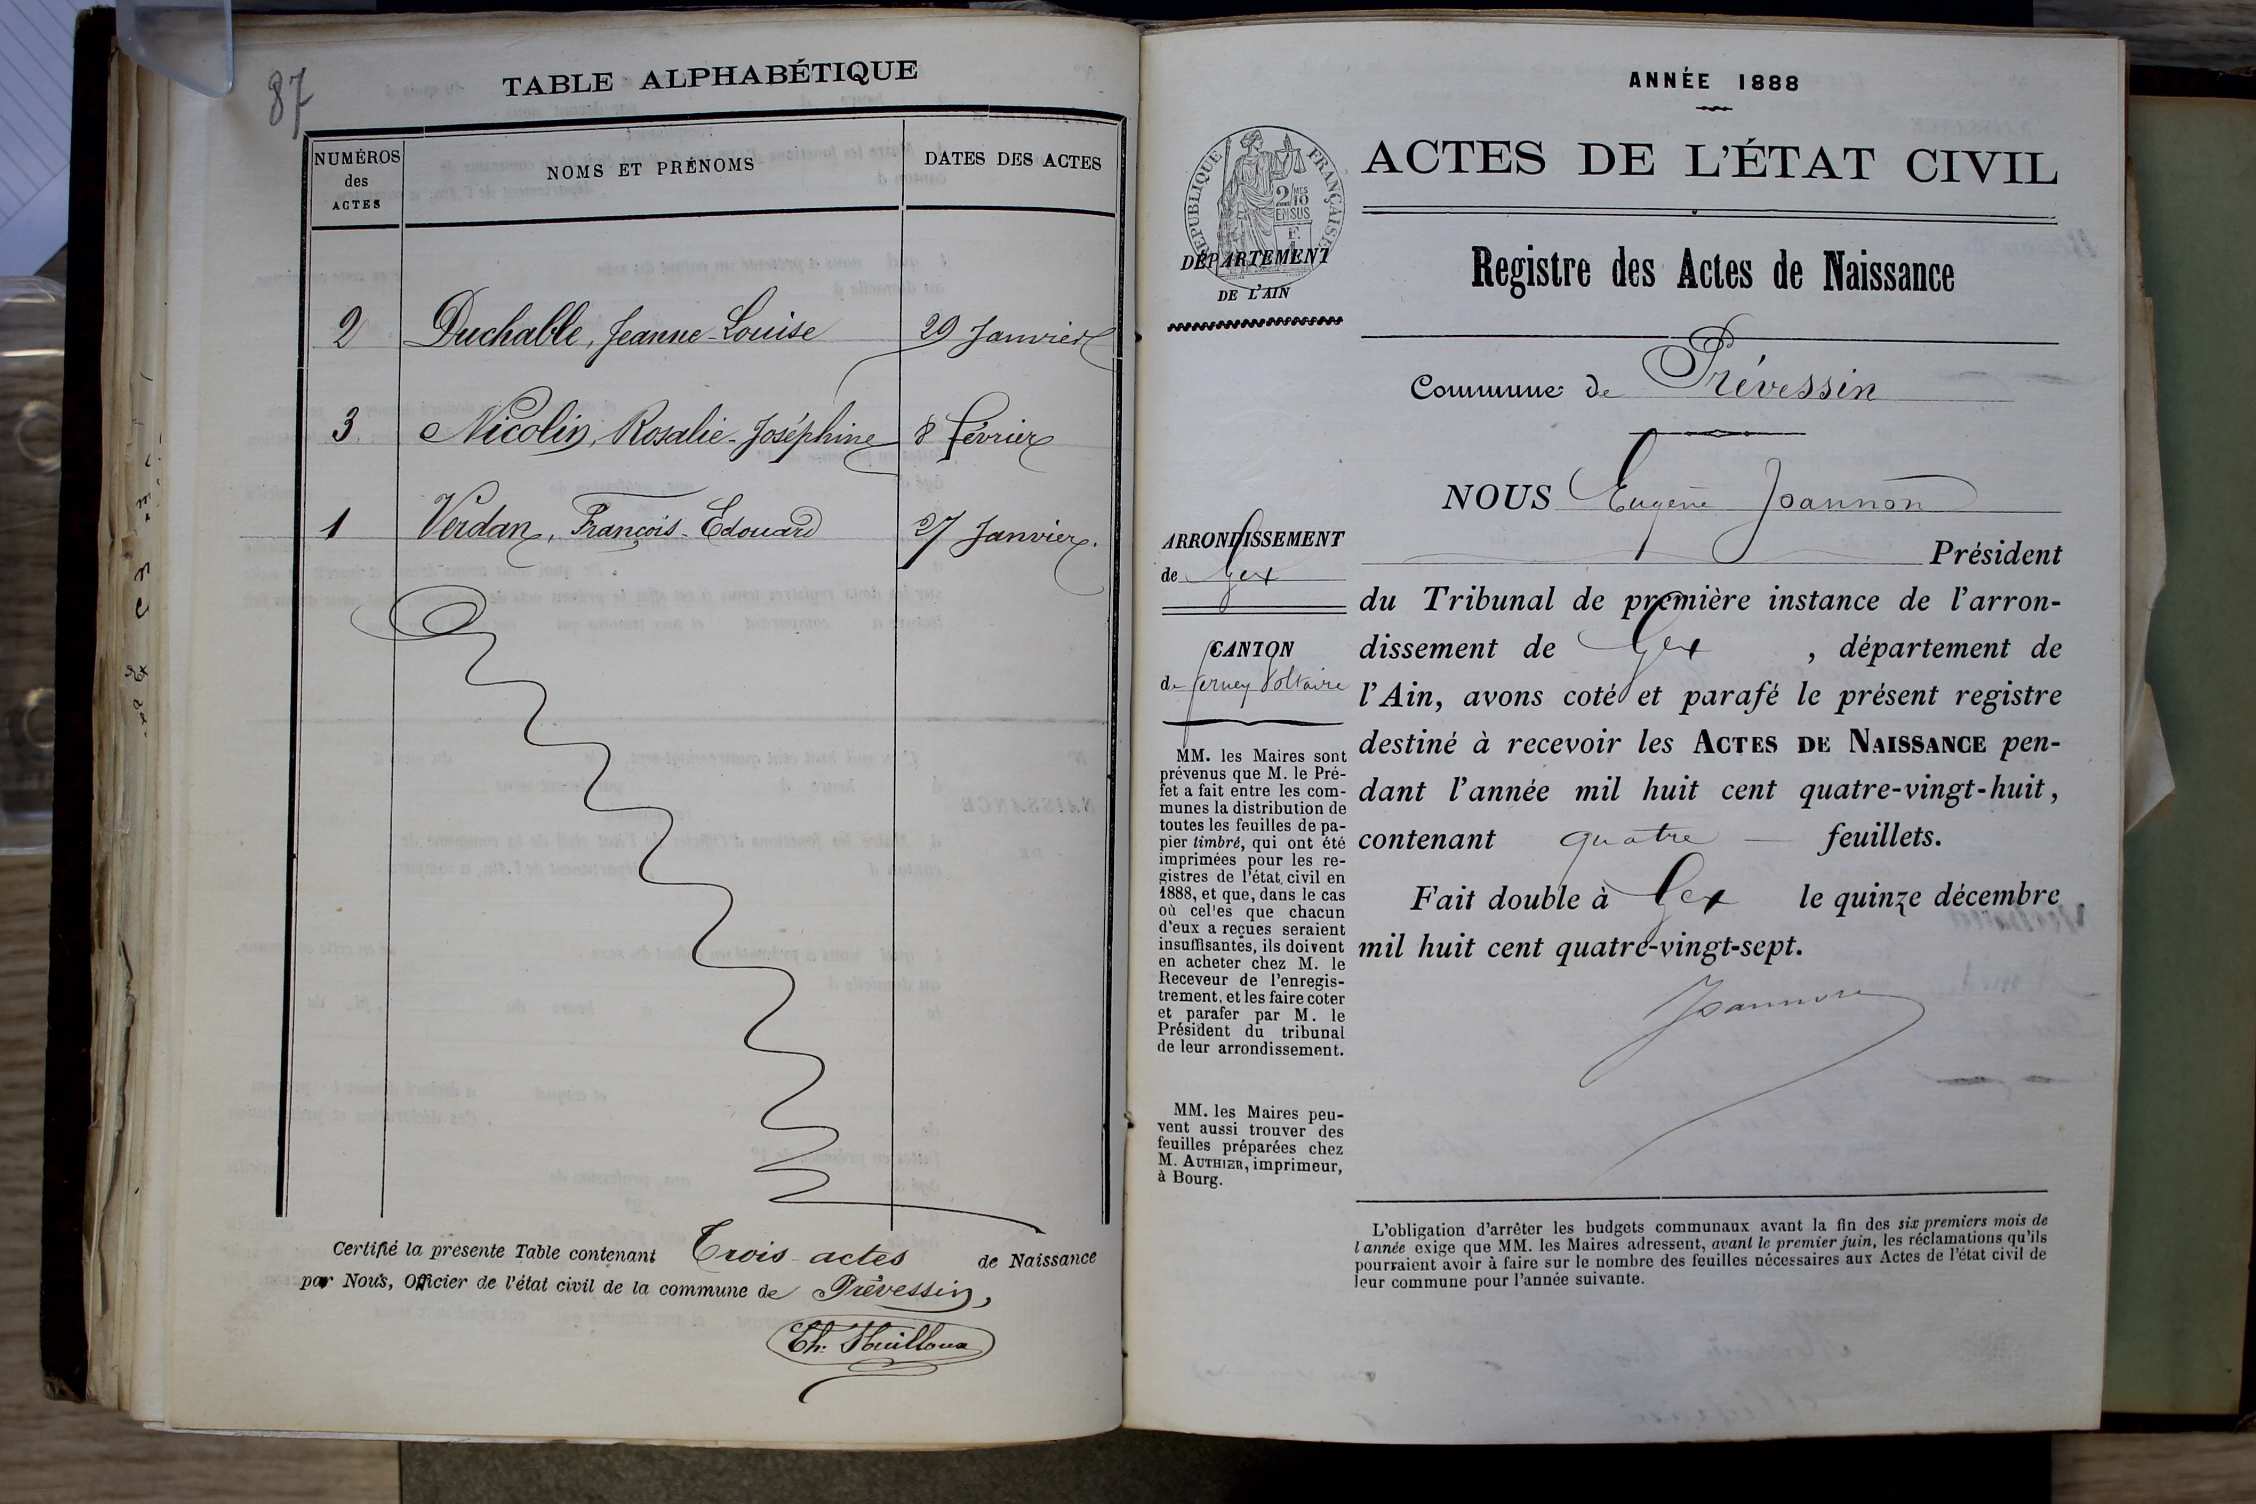 87
TABLE ALPHABÉTIQUE
NUMÉROS
des
ACTES
NOMS ET PRÉNOMS
DATES DES ACTES
2 Duchable, Jeanne-Louise 29 Janvier
3 Nicolin, Rosalie-Joséphine 8 février
1 Verdan, François-Edouard 27 Janvier.
Certifié la présente Table contenant Trois actes de Naissance
par Nous, Officier de l'état civil de la commune de Prévessin,
ANNÉE 1888
ACTES DE L'ÉTAT CIVIL
RÉPUBLIQUE FRANÇAISE
2/10
EN SUS
DÉPARTEMENT
DE L'AIN
Registre des Actes de Naissance
Commune de Prévessin
NOUS Eugène Joannon
Président
du Tribunal de première instance de l'arron-
dissement de Gex , département de
l'Ain, avons coté et parafé le présent registre
destiné à recevoir les ACTES DE NAISSANCE pen-
dant l'année mil huit cent quatre-vingt-huit,
contenant quatre — feuillets.
Fait double à Gex le quinze décembre
mil huit cent quatre-vingt-sept.
Joannon
ARRONDISSEMENT
de Gex
CANTON
de Ferney Voltaire
MM. les Maires sont
prévenus que M. le Pré-
fet a fait entre les com-
munes la distribution de
toutes les feuilles de pa-
pier timbré, qui ont été
imprimées pour les re-
gistres de l'état civil en
1888, et que, dans le cas
où celles que chacun
d'eux a reçues seraient
insuffisantes, ils doivent
en acheter chez M. le
Receveur de l'enregis-
trement, et les faire coter
et parafer par M. le
Président du tribunal
de leur arrondissement.
MM. les Maires peu-
vent aussi trouver des
feuilles préparées chez
M. AUTHIER, imprimeur,
à Bourg.
L'obligation d'arrêter les budgets communaux avant la fin des six premiers mois de
l'année exige que MM. les Maires adressent, avant le premier juin, les réclamations qu'ils
pourraient avoir à faire sur le nombre des feuilles nécessaires aux Actes de l'état civil de
leur commune pour l'année suivante.